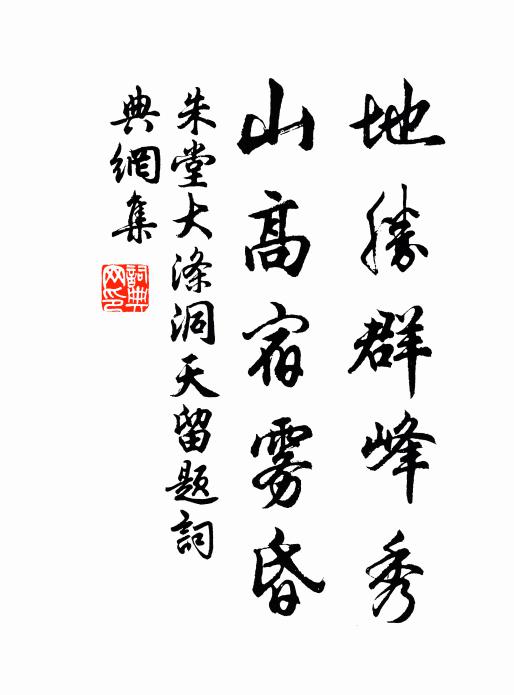 地勝群峰秀
山高宿雾昏
朱堂大滌洞天留题詞
典網集
詞典网印